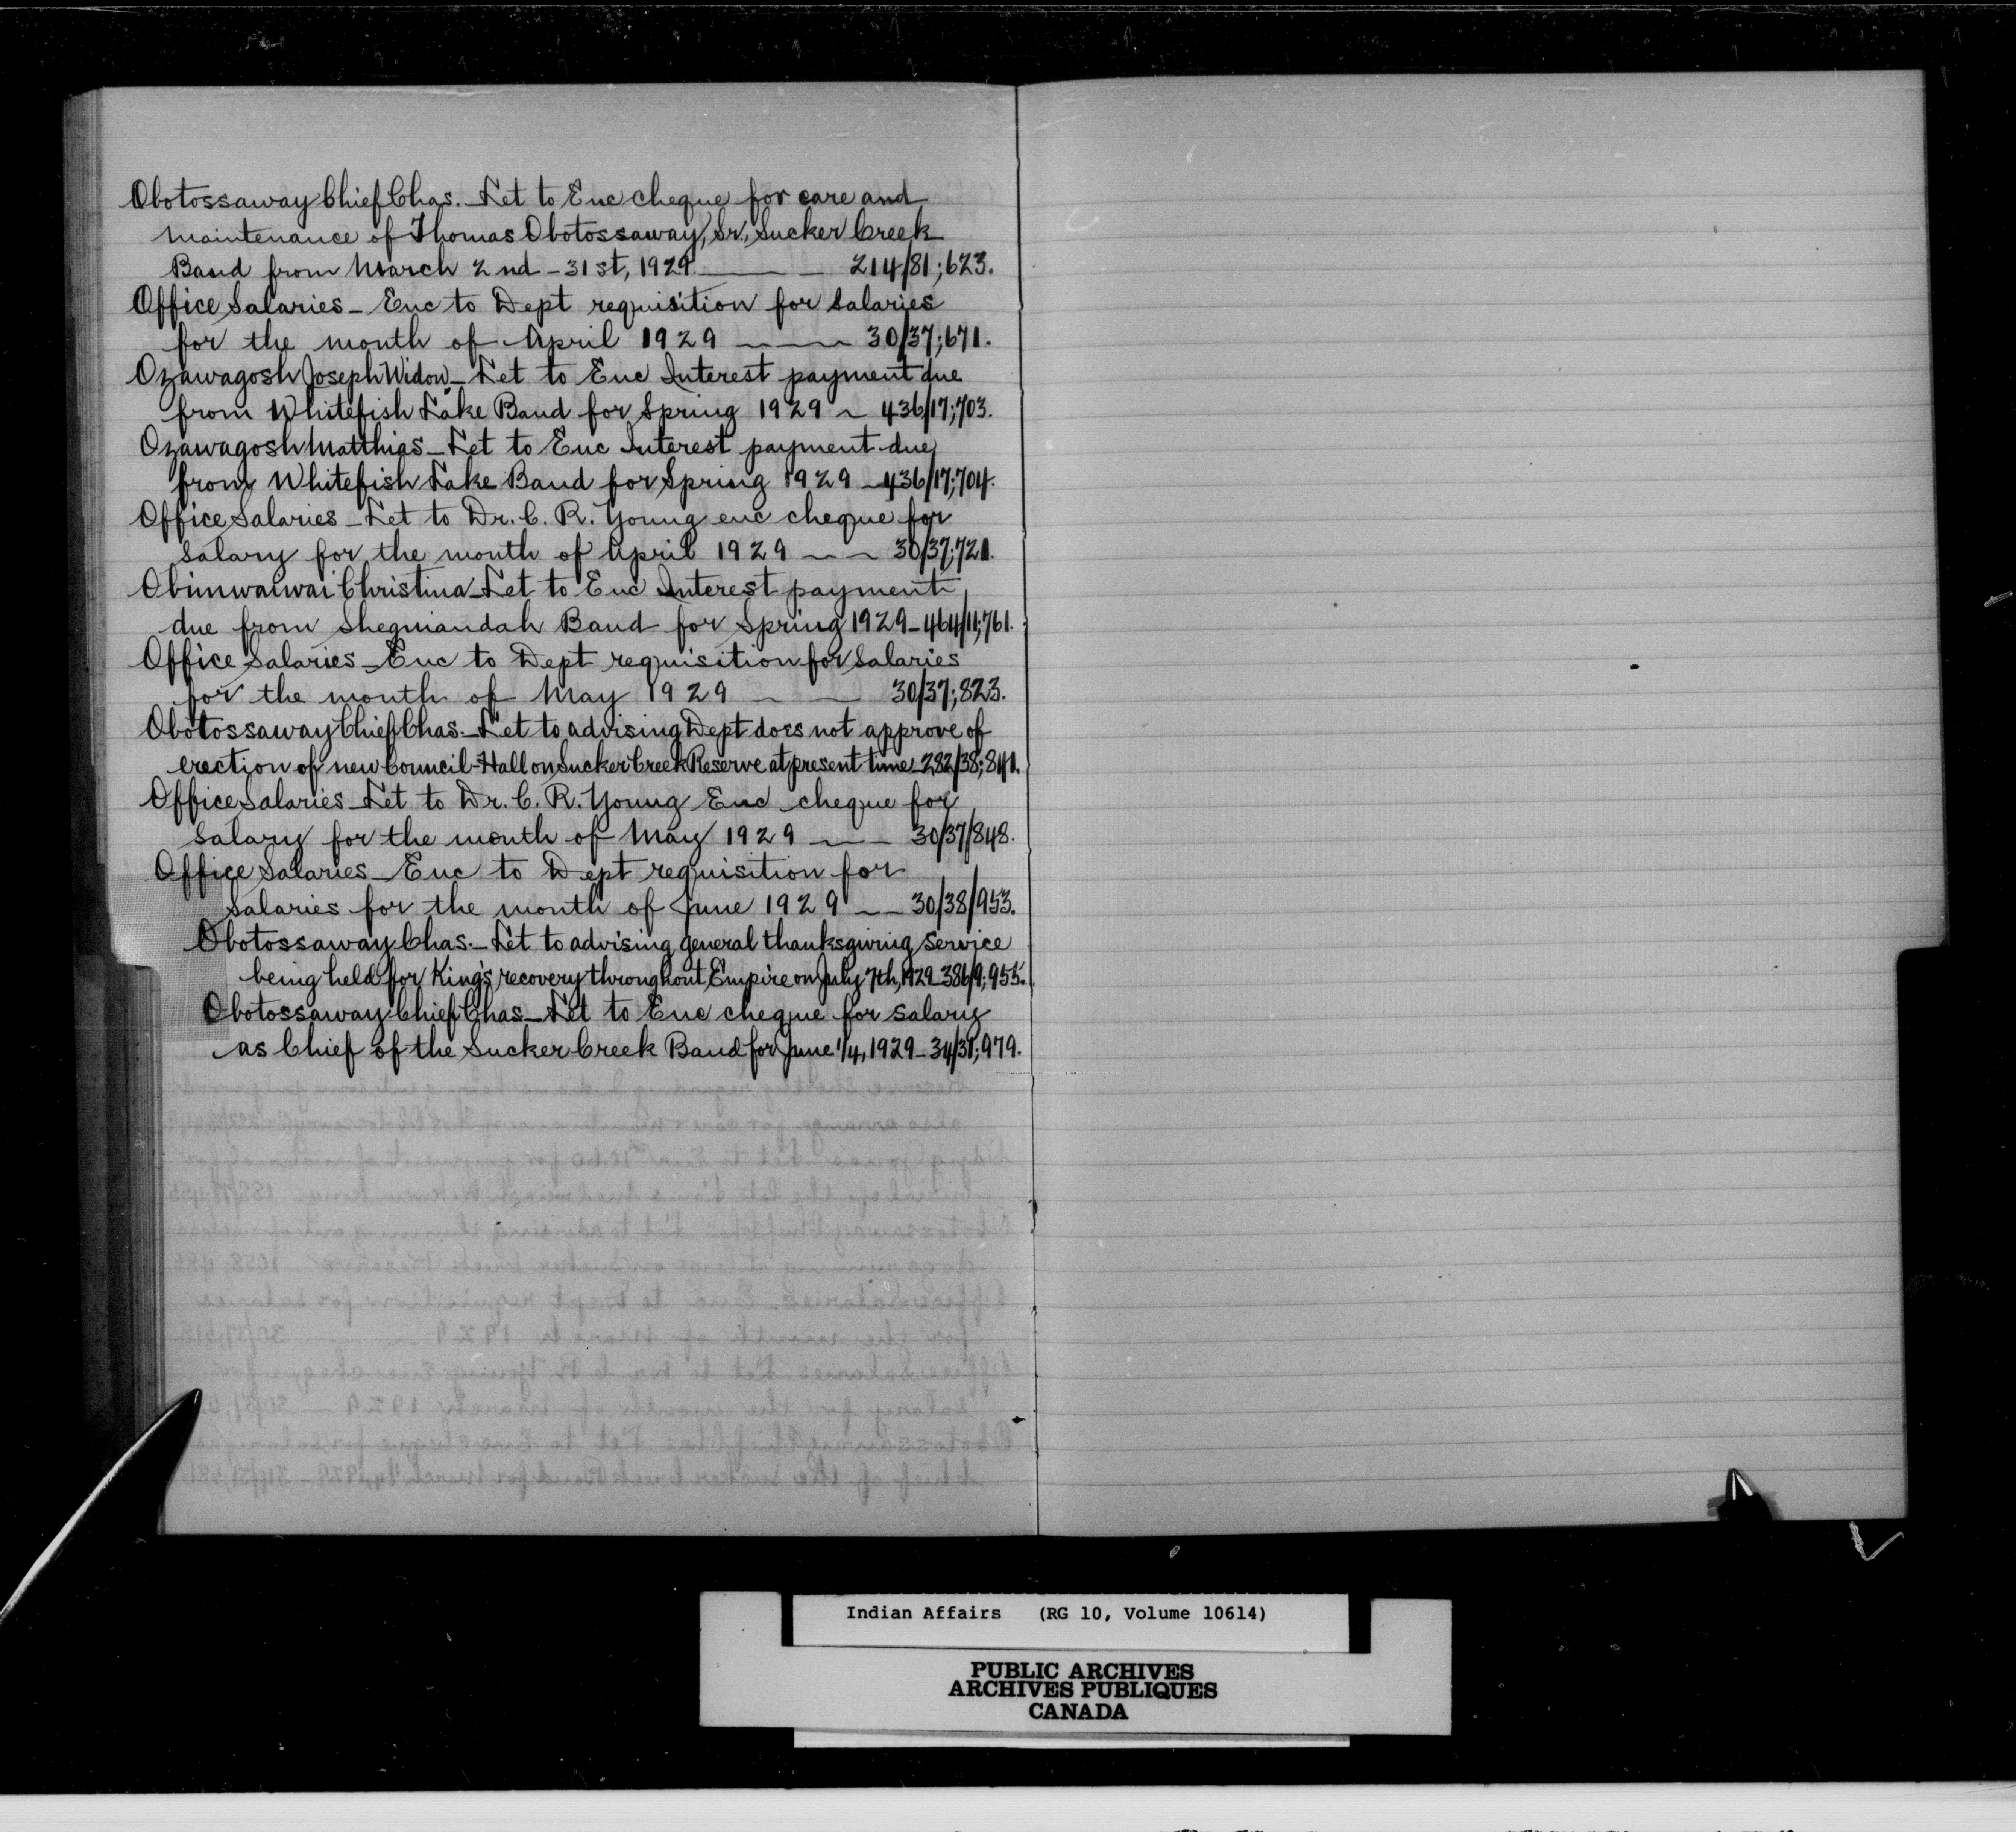 Obotossaway Chief Chas. Let to Enc cheque for care and
maintenance of Thomas Obotossaway, Sr., Sucker Creek
Band from March 2nd - 31st, 1929 — — 214/81;623.
Office Salaries - Enc to Dept requisition for Salaries
for the month of April 1929 — — 30/37;671.
Ozawagosh Joseph Widow - Let to Enc Interest payment due
from Whitefish Lake Band for Spring 1929 ~ 436/17;703.
Ozawagosh Matthias - Let to Enc Interest payment due
from Whitefish Lake Band for Spring 1929 - 436/17;704.
Office Salaries - Let to Dr. C. R. Young enc cheque for
Salary for the month of April 1929 — ~ 30/37;721.
Obimwaiwai Christina - Let to Enc Interest payment
due from Sheguiandah Band for Spring 1929 - 464/11;761.
Office Salaries - Enc to Dept requisition for Salaries
for the month of May 1929 ~ — 30/37;823.
Obotossaway Chief Chas. - Let to advising Dept does not approve of
erection of new Council-Hall on Sucker Creek Reserve at present time - 282/38;841.
Office Salaries - Let to Dr. C. R. Young Enc cheque for
Salary for the month of May 1929 — - 30/37/848.
Office Salaries - Enc to Dept requisition for
Salaries for the month of June 1929 ~ — 30/38/953.
Obotossaway Chas. - Let to advising general thanksgiving service
being held for King's recovery throughout Empire on July 7th, 1929 - 386/9;955.
Obotossaway Chief Chas - Let to Enc cheque for salary
as Chief of the Sucker Creek Band for June 1/4, 1929 - 34/31;979.
Indian Affairs (RG 10, Volume 10614)
PUBLIC ARCHIVES
ARCHIVES PUBLIQUES
CANADA